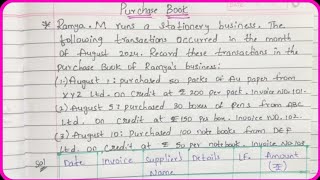 Purchase Book
* Ramya. M runs a stationery business. The
following transactions occurred in the month
of August 2024. Record these transactions in the
purchase Book of Ramya's business:
(1) August 1: purchased 50 packs of A4 paper from
XYZ Ltd. on credit at ₹ 200 per pack. Invoice No. 101.
(2) August 5: purchased 30 boxes of pens from ABC
Ltd, on credit at ₹ 150 per box. Invoice No. 102.
(3) August 10: Purchased 100 note books from DEF
Ltd. on credit at ₹ 50 per notebook. Invoice No. 103
Sol
Date Invoice Supplier Details LF. Amount
Name (₹)